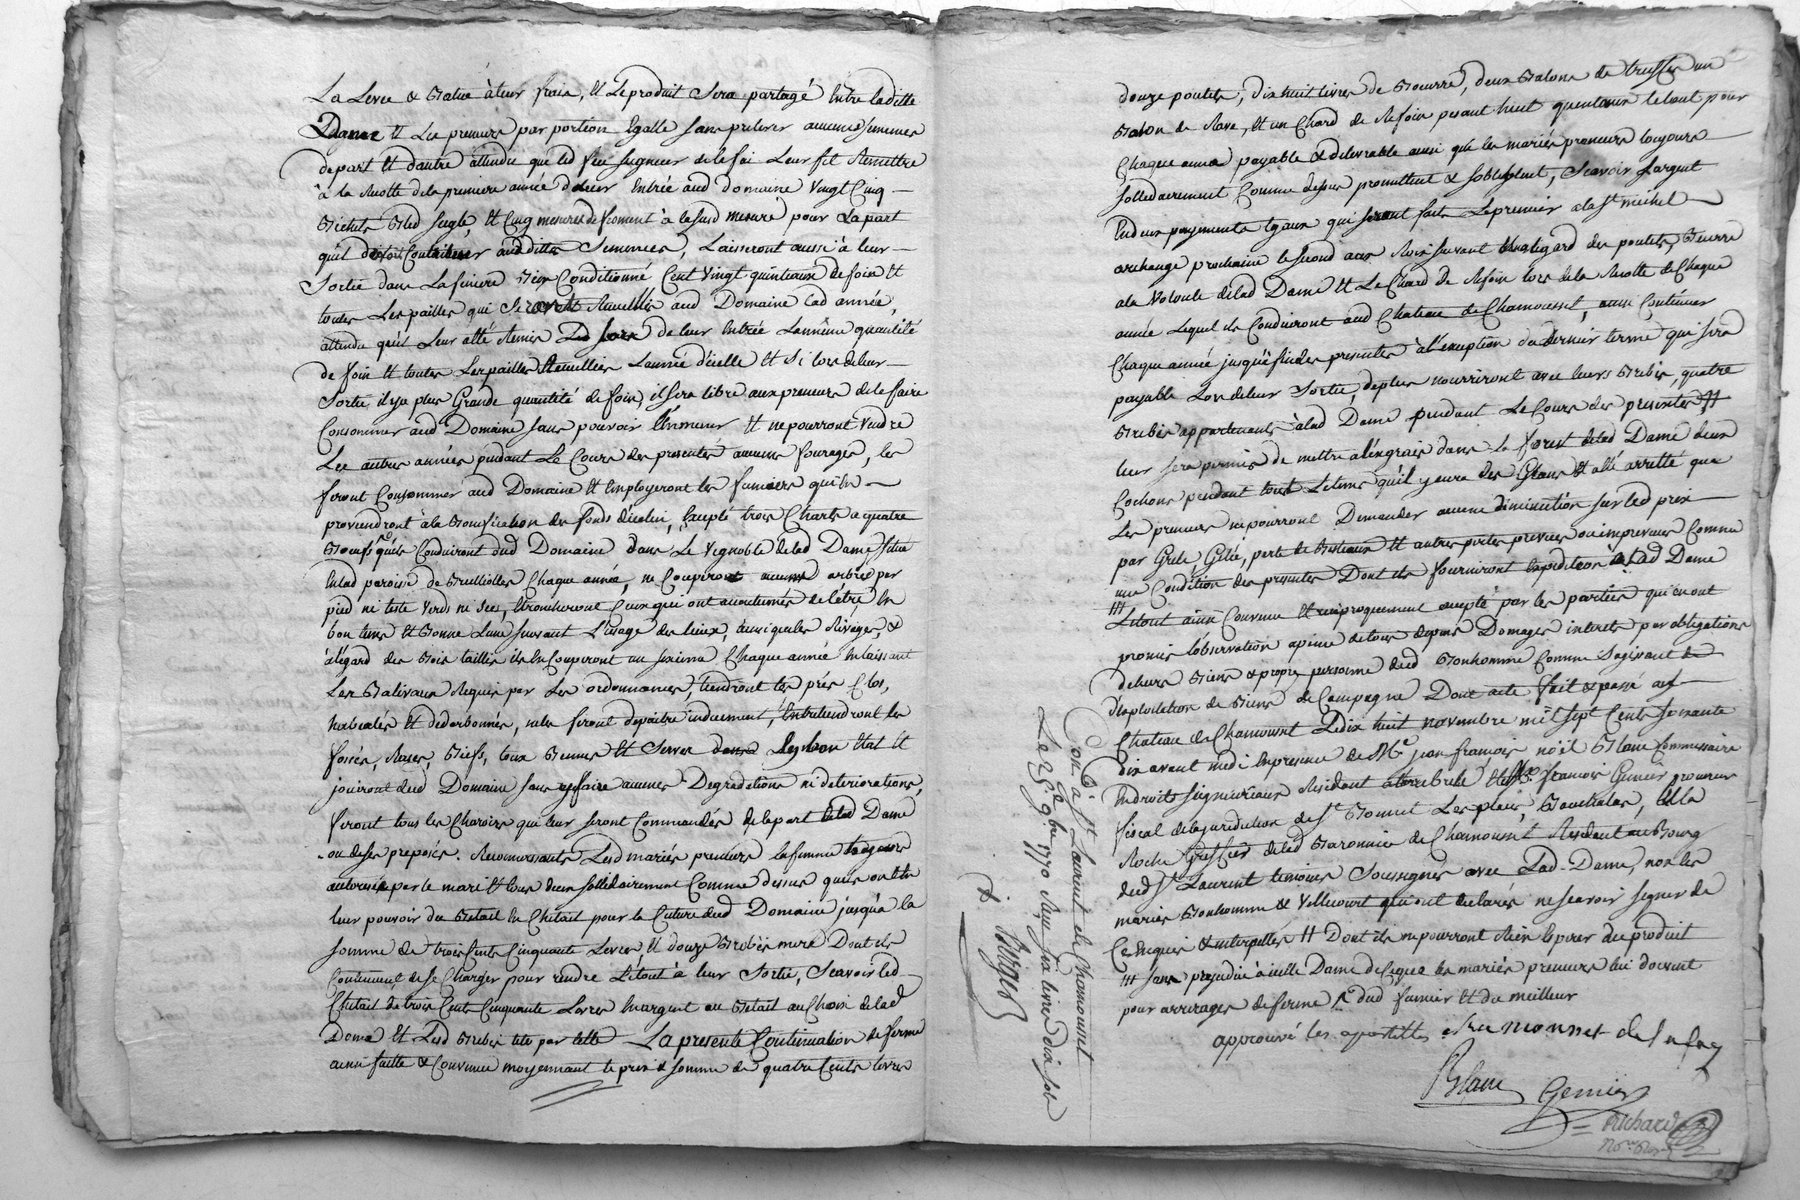 La Levée & Battue à leur frais, Et Le produit Sera partagé Entre laditte
Dame Et Les preneurs par portion Egalle Sans prelever aucunes semences
depart Et dautre attendu que led feu Seigneur de la foi Leur fit Remettre
à la Recolte de la premiere année de leur Entrée aud domaine Vingt Cinq
Bichets Bled Segle, Et Cinq mesures de froment à la susd mesure pour La part
qu'il devoit Contribuer aud dittes Semences, Laisseront aussi à leur
Sortie dans La finiere Bien Conditionné Cent Vingt quintaux de foin Et
toutes Les pailles qui Seront Recueillies aud Domaine lad année,
attendu qu'il Leur a été Remis Lors de leur Entrée La même quantité
de foin Et toutes Les pailles Recueillies L'année d'icelle Et Si lors de leur
Sortie il y a plus Grande quantité de foin, il sera libre aux preneurs de le faire
Consommer aud Domaine sans pouvoir l'Enmener Et ne pourront Vendre
Les autres années pendant Le Cours des presentes aucuns fourages, les
feront Consommer aud Domaine Et Employeront les fumiers qu'en
proviendront à la Bonification des fonds d'icelui, Excepté trois Charts a quatre
Boeufs qu'ils Conduiront dud Domaine dans Le Vignoble de lad Dame, situé
En lad paroisse de Brulliolles Chaque année, ne Couperont aucuns arbres par
pied ni teste Verds ni Secs, Etroncheront Ceux qui ont accoutumés de l'être En
bon tems Et Bonne Lune suivant L'usage des lieux, ainsi que les Rivages, &
à l'égard des Bois taillis ils En Couperont un sixieme Chaque année En laissant
Les Baliveaux Requis par Les ordonnances, tiendront les prés Clos,
& dederbonnés, ne les feront depaitre induement, Entretiendront les
fossés, Rases, Biefs, tous Bennes Et Serves dans Leur bon Etat Et
jouiront dud Domaine sans y faire aucunes Degradations ni deteriorations,
feront tous les Charois que leur seront Commandés de la part de lad Dame
ou de ses preposés. Reconnaissants Lesd mariés preneurs la femme toujours
authorisée par le mari Et tous deux sollidairement Comme dessus qu'ils ont En
leur pouvoir du Betail En Chetail pour la Culture dud Domaine jusqu'à la
somme de trois Cents Cinquante Livres Et douze Brebis mere Dont ils
Continuent de se Charger pour rendre Le tout à leur Sortie, Scavoir led
Chetail de trois Cents Cinquante Livres En argent ou Betail au Choix de lad
Dame Et Lesd Brebis tete par tette La presente Continuation de ferme
ainsi faitte & Convenue moyennant le prix & somme de quatre Cents livres
douze poulets, dix huit livres de Beurre, deux Balons de truffes un
Balon de Rave, Et un Chard de Refoin pesant huit quintaux le tout pour
Chaque année payable & delivrable ainsi que les mariés preneurs toujours
sollidairement Comme dessus promettent & s'obligent, Scavoir L'argent
En deux payements Egaux qui seront faits Le premier a la St michel
archange prochaine le second aux Rois suivant Et a l'egard des poulets, Beurre
a la Volonté de lad Dame Et Le Chard de Refoin lors de la Recolte de Chaque
année Lequel ils Conduiront aud Chateau de Chamousset, ainsi Continuer
Chaque année jusqu'à fin des presentes à l'exception du dernier terme qui sera
payable Lors de leur Sortie, de plus nourriront avec leurs Brebis, quatre
Brebis appartenants à lad Dame pendant Le Cours des presentes H
leur sera permis de mettre a l'engrais dans La forest de lad Dame deux
Cochons pendant tout Le tems qu'il y aura des Glans Et a été arretté que
Les preneurs ne pourront Demander aucune diminution sur led prix
par Grele, Gelée, perte de Bestiaux Et autres pertes prevues ou imprevues Comme
une Condition des presentes Dont ils fourniront Expedition à lad Dame
HH Le tout ainsi Convenu Et reciproquement accepté par les parties qui en ont
promis l'observation a peine de tous depens Domages interets par obligations
de leurs Biens & propre personne dud Bonhomme Comme S'agissant de
L'exploitation de Biens de Campagne Dont acte fait & passé au
Chateau de Chamousset Le dix huit novembre mil sept Cents soixante
dix avant midi En presence de Me jean françois noël Blanc Commissaire
En droits seigneuriaux Resident a & Me françois Genier procureur
fiscal de la juridiction de St Bonnet Les places, Et La
Roche Greffier de lad Baronnie de Chamousset Resident au Bourg
dud St Laurent temoins Soussignés avec Lad Dame, non les
mariés Bonhomme & Villecourt qui ont declarés ne scavoir signer de
Ce Enquis & interpellés H Dont ils ne pourront Rien Esperer du produit
HH sans prejudice à icelle Dame de Ce que les mariés preneurs lui doivent
pour arrerages de ferme & dud fumier Et du meilleur
approuvé les apostilles monnet de
Blanc Genier
Richard
Nore Roy
Con lé a St Laurent de Chamousset
Le 25e 9bre 1770 Reçu six livres dix sols